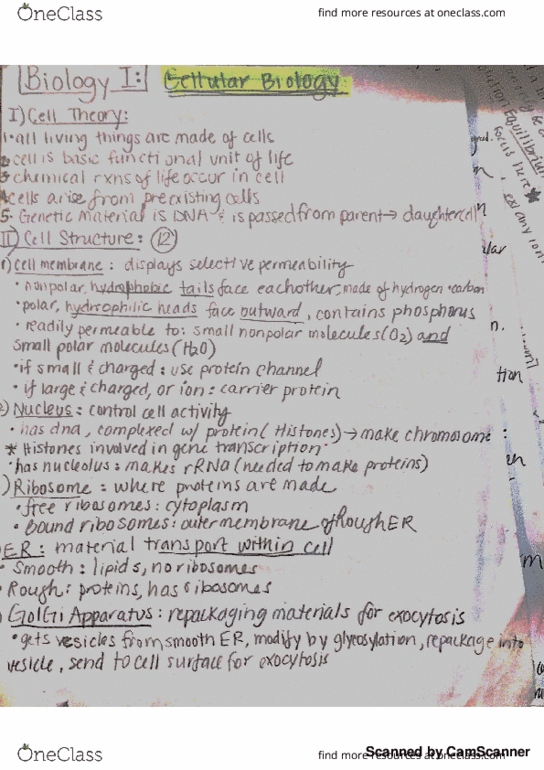 OneClass
find more resources at oneclass.com
Biology I: Cellular Biology
I) Cell Theory:
1. all living things are made of cells
cell is basic functional unit of life
chemical rxns of life occur in cell
cells arise from preexisting cells
5. Genetic material is DNA & is passed from parent → daughter cell
II) Cell Structure: (12)
1) Cell membrane: displays selective permeability
• nonpolar, hydrophobic tails face eachother, made of hydrogen + carbon
• polar, hydrophilic heads face outward, contains phosphorus
• readily permeable to: small nonpolar molecules (O2) and
small polar molecules (H2O)
• if small & charged: use protein channel
• if large & charged, or ion: carrier protein
) Nucleus: control cell activity
• has dna, complexed w/ protein (Histones) → make chromosome
* Histones involved in gene transcription
• has nucleolus: makes rRNA (needed to make proteins)
) Ribosome: where proteins are made
• free ribosomes: cytoplasm
• bound ribosomes: outer membrane of Rough ER
ER: material transport within cell
• Smooth: lipids, no ribosomes
• Rough: proteins, has ribosomes
) GolGi Apparatus: repackaging materials for exocytosis
• gets vesicles from smooth ER, modify by glycosylation, repackage into
vesicle, send to cell surface for exocytosis
Equilibrium
focus here
OneClass
find more resources at oneclass.com
Scanned by CamScanner